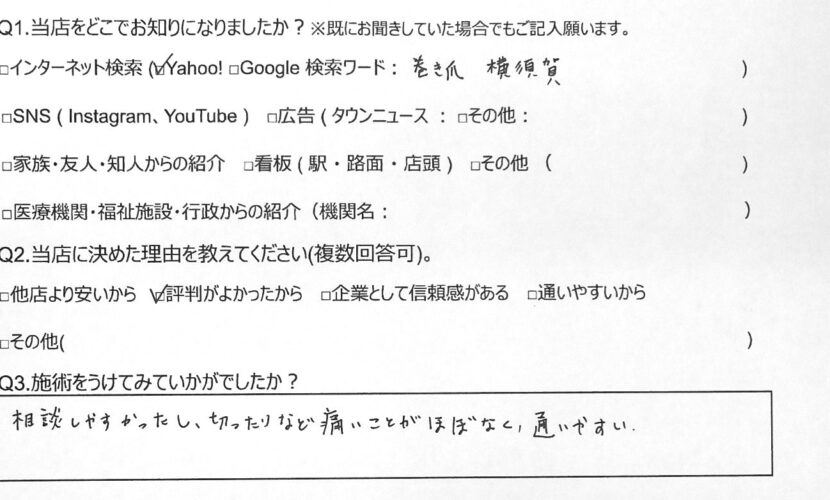 Q1.当店をどこでお知りになりましたか？※既にお聞きしていた場合でもご記入願います。
□インターネット検索 (☑Yahoo! □Google 検索ワード： 巻き爪 横須賀 )
□SNS ( Instagram、YouTube ) □広告 ( タウンニュース ： □その他： )
□家族・友人・知人からの紹介 □看板 ( 駅・路面・店頭 ) □その他 ( )
□医療機関・福祉施設・行政からの紹介（機関名： )
Q2.当店に決めた理由を教えてください(複数回答可)。
□他店より安いから ☑評判がよかったから □企業として信頼感がある □通いやすいから
□その他( )
Q3.施術をうけてみていかがでしたか？
相談しやすかったし、切ったりなど痛いことがほぼなく、通いやすい.